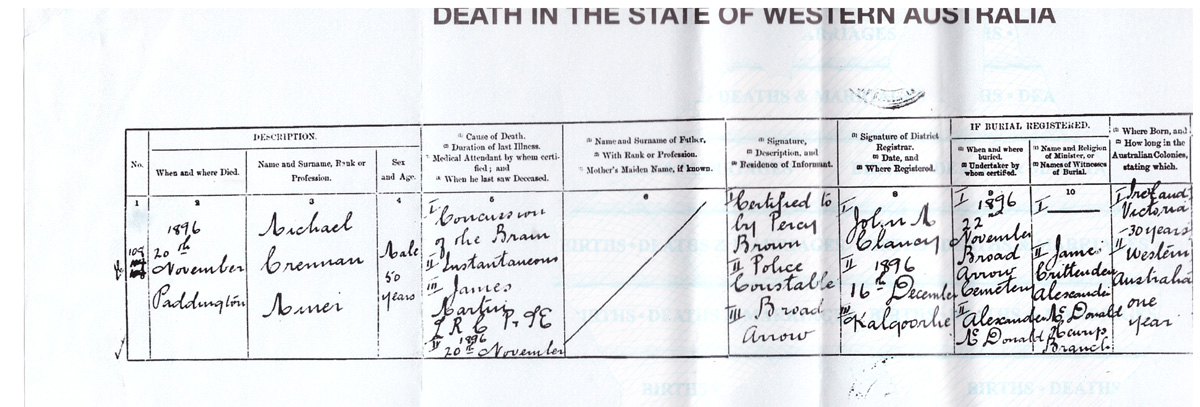 DEATH IN THE STATE OF WESTERN AUSTRALIA
No.
DESCRIPTION.
When and where Died.
Name and Surname, Rank or
Profession.
Sex
and Age.
(1) Cause of Death.
(2) Duration of last Illness.
(3) Medical Attendant by whom certi-
fied; and
(4) When he last saw Deceased.
(1) Name and Surname of Father,
(2) With Rank or Profession.
(3) Mother's Maiden Name, if known.
(1) Signature,
(2) Description, and
(3) Residence of Informant.
(1) Signature of District
Registrar.
(2) Date, and
(3) Where Registered.
IF BURIAL REGISTERED.
(1) When and where
buried.
(2) Undertaker by
whom certified.
(1) Name and Religion
of Minister, or
(2) Names of Witnesses
of Burial.
(1) Where Born, and
(2) How long in the
Australian Colonies,
stating which.
1 2 3 4 5 6 7 8 9 10
109
1896
20th
November
Paddington
Michael
Crennan
Miner
Male
50
years
I Concussion
of the Brain
II Instantaneous
III James
Martin
L R C P. & E
IV 1896
20th November
I Certified to
by Percy
Brown
II Police
Constable
III Broad
Arrow
I John A
Clancy
II 1896
16th December
III Kalgoorlie
I 1896
22nd
November
Broad
Arrow
Cemetery
II Alexander
McDonald
I
II James
Crittenden
Alexander
McDonald
Branch
I Ireland
Victoria
30 years
II Western
Australia
one
year
BIRTHS • DEATHS